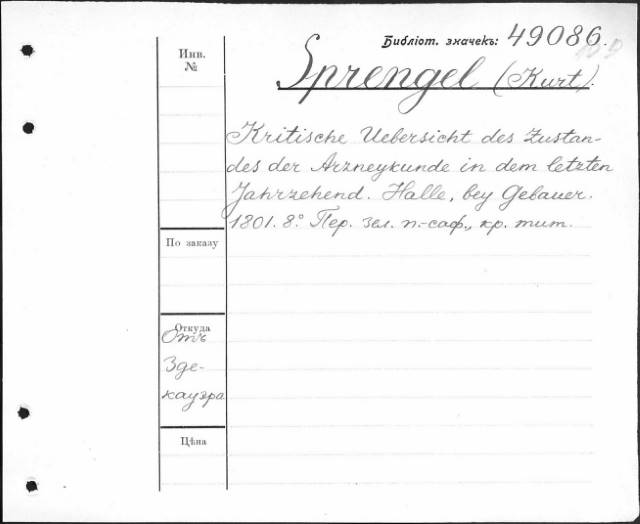 Библіот. значекъ: 49086.
Инв.
№
Sprengel (Kurt).
Kritische Uebersicht des Zustan-
des der Arzneykunde in dem letzten
Jahrzehend. Halle, bey Gebauer.
1801. 8.° Пер. зел. п.-саф., кр. тит.
По заказу
Откуда
Отъ
Зде-
кауэра
Цѣна